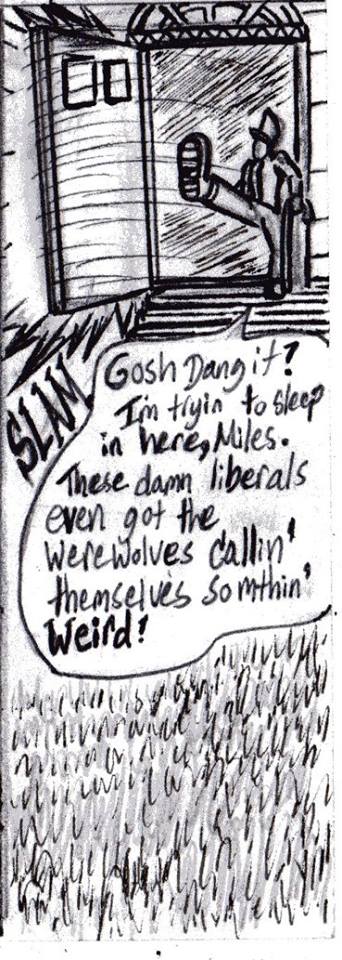 SLAM
Gosh Dang it!
I'm tryin to sleep
in here, Miles.
These damn liberals
even got the
werewolves callin'
themselves somthin'
Weird!